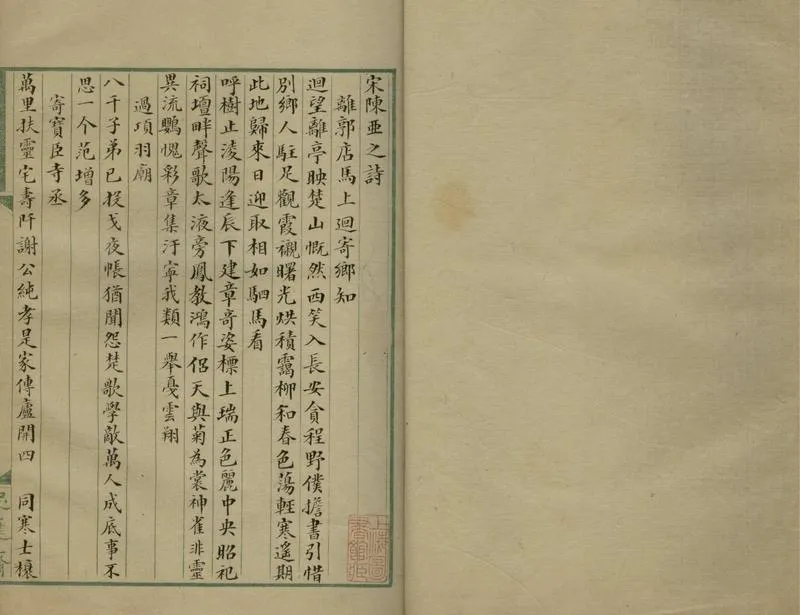 宋陳亞之詩
離郭店馬上迴寄鄉知
迴望離亭映楚山慨然西笑入長安貪程野僕擔書引惜
別鄉人駐足觀霞襯曙光烘積靄柳和春色蕩輕寒遙期
此地歸來日迎取相如駟馬看
呼樹止淩陽逢辰下建章奇姿標上瑞正色麗中央昭祀
祠壇畔聲歌太液旁鳳教鴻作侶天與菊為裳神雀非靈
異流鸚愧彩章集汙寧我類一舉戞雲翔
過項羽廟
八千子弟已投戈夜帳猶聞怨楚歌學敵萬人成底事不
思一个范增多
寄寶臣寺丞
萬里扶靈宅壽阡謝公純孝是家傳廬開四 同寒士櫬
上海圖書館藏